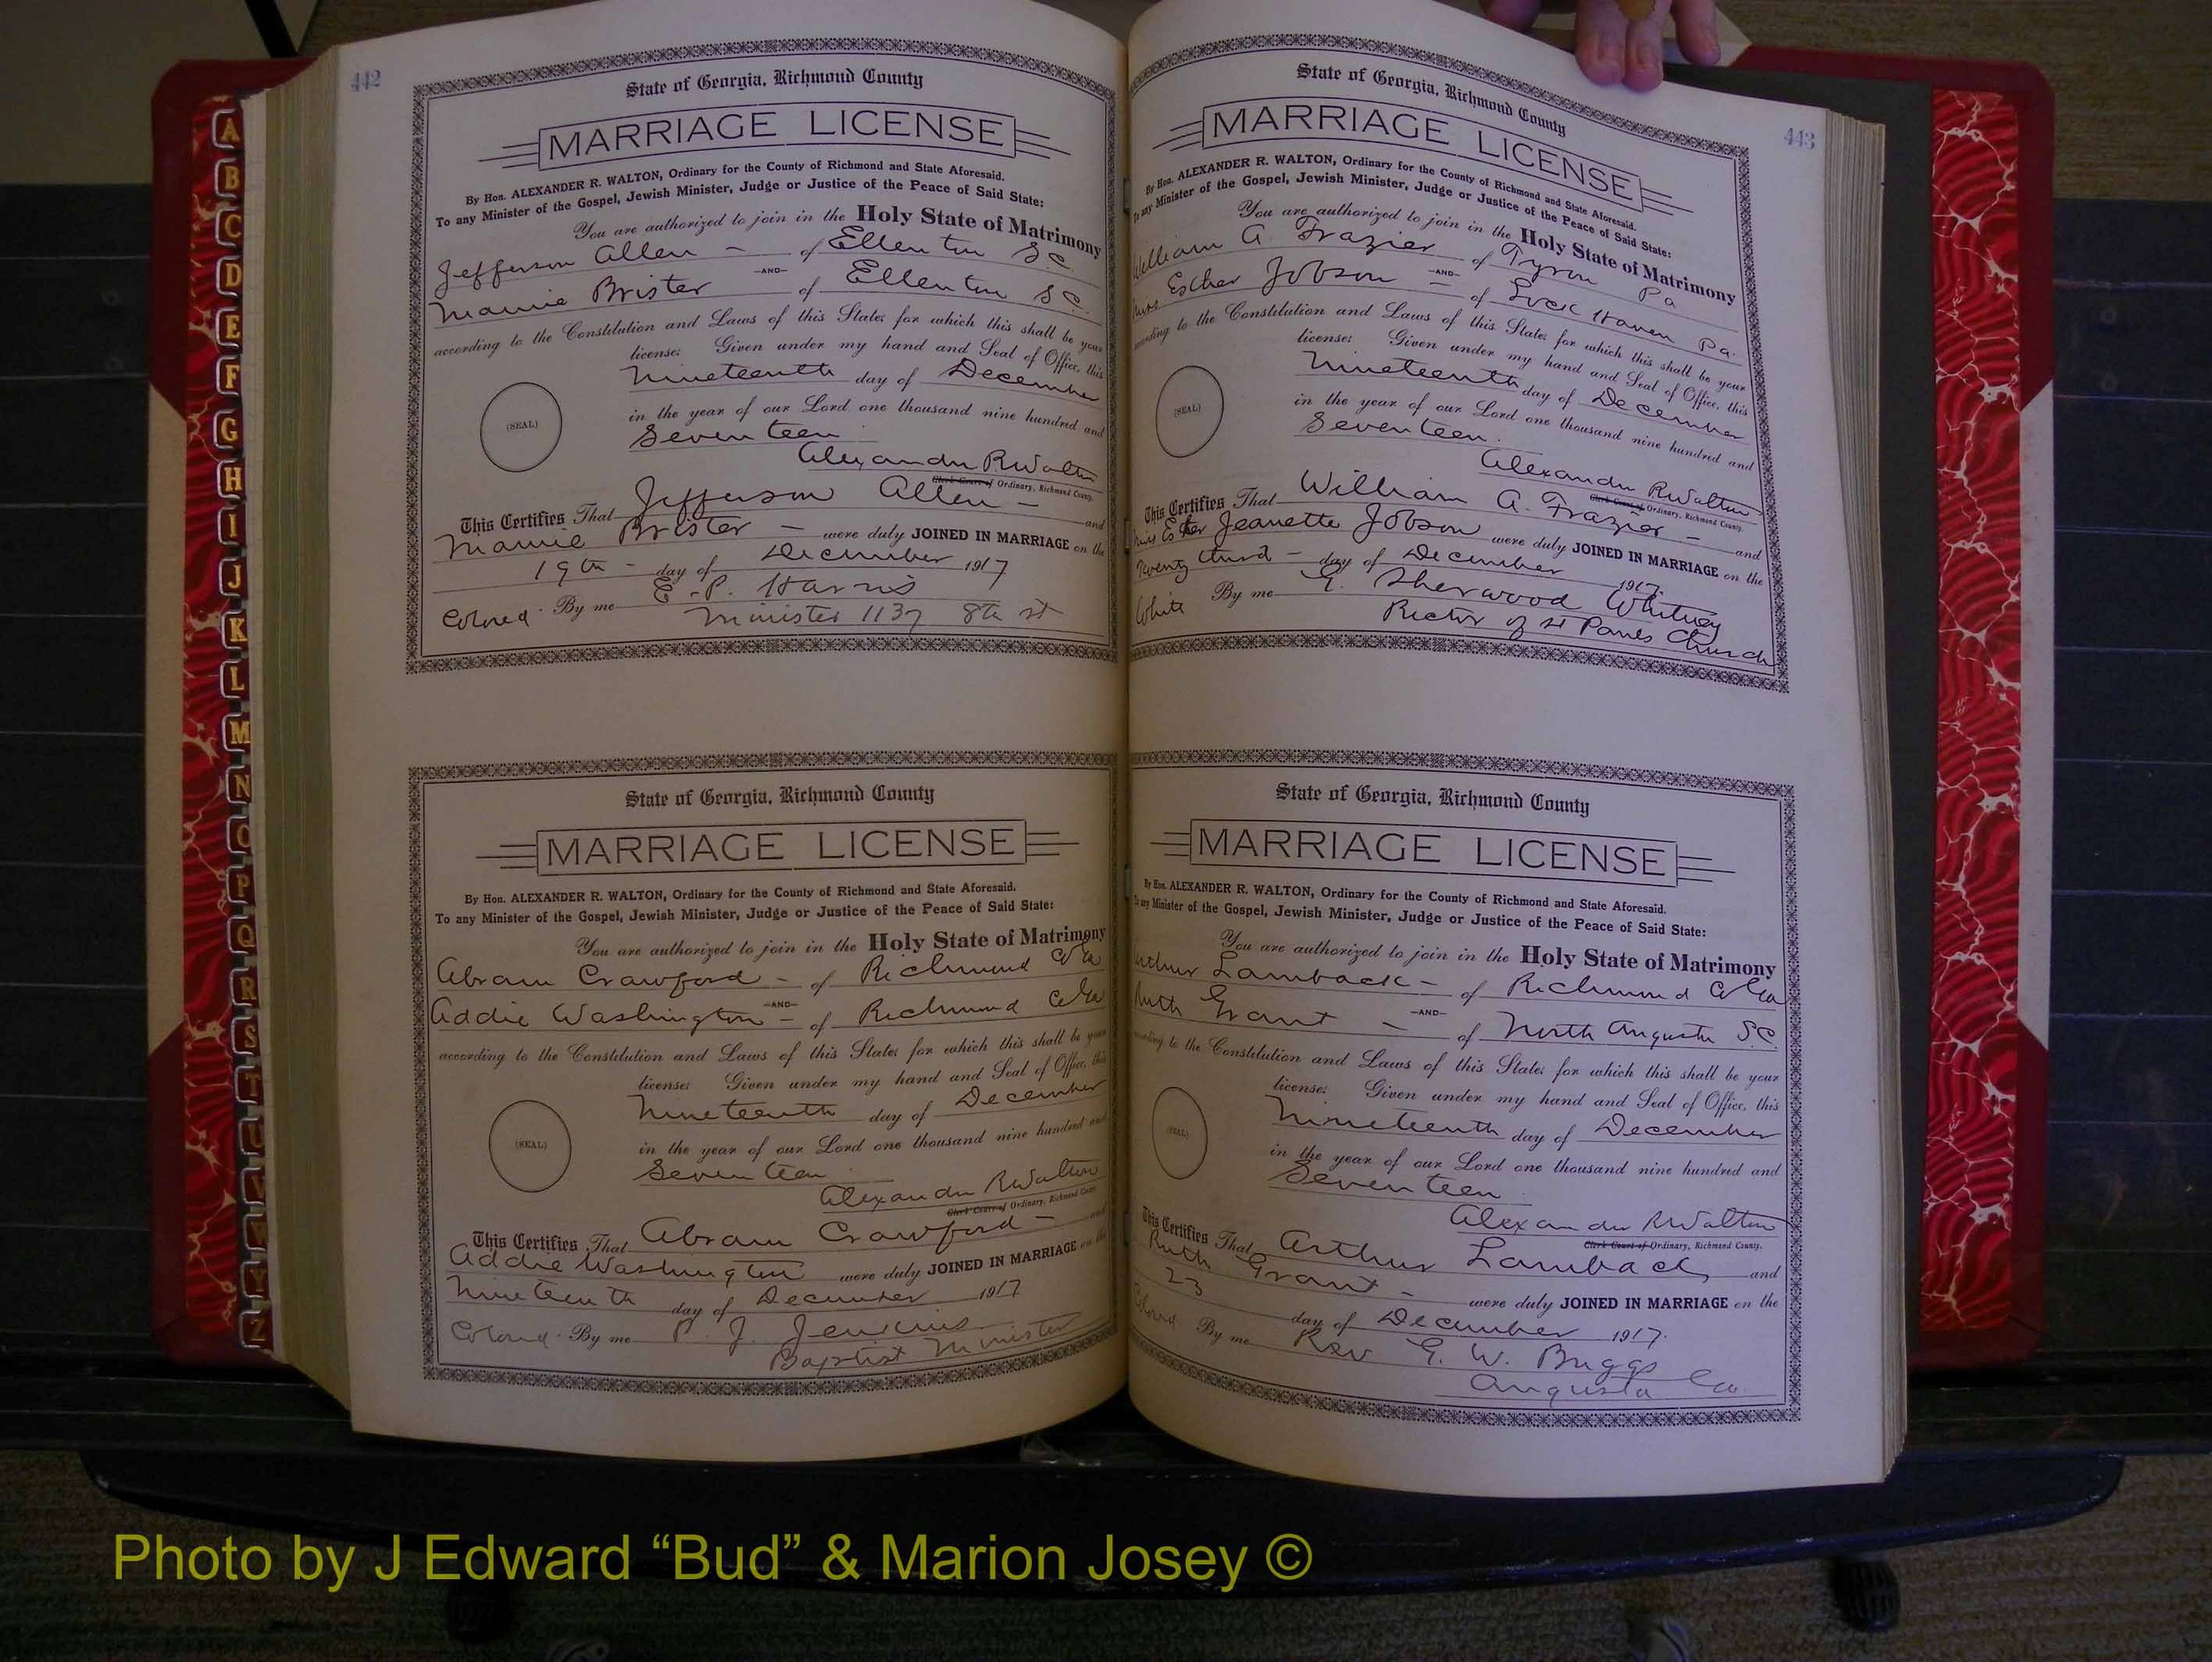 442
State of Georgia, Richmond County
MARRIAGE LICENSE
By Hon. ALEXANDER R. WALTON, Ordinary for the County of Richmond and State Aforesaid.
To any Minister of the Gospel, Jewish Minister, Judge or Justice of the Peace of Said State:
You are authorized to join in the Holy State of Matrimony
Jefferson Allen - of Ellenton S.C.
-AND-
Mamie Brister of Ellenton S.C.
according to the Constitution and Laws of this State; for which this shall be your
license: Given under my hand and Seal of Office, this
Nineteenth day of December
(SEAL)
in the year of our Lord one thousand nine hundred and
Seventeen
Alexander R Walton
Clerk Court of Ordinary, Richmond County.
This Certifies That Jefferson Allen - and
Mamie Brister - were duly JOINED IN MARRIAGE on the
19th - day of December 1917
Colored - By me E. P. Harris
Minister 1137 8th st
State of Georgia, Richmond County
MARRIAGE LICENSE
By Hon. ALEXANDER R. WALTON, Ordinary for the County of Richmond and State Aforesaid.
To any Minister of the Gospel, Jewish Minister, Judge or Justice of the Peace of Said State:
You are authorized to join in the Holy State of Matrimony
Abram Crawford - of Richmond Co Ga
-AND-
Addie Washington - of Richmond Co Ga
according to the Constitution and Laws of this State; for which this shall be your
license: Given under my hand and Seal of Office, this
Nineteenth day of December
(SEAL)
in the year of our Lord one thousand nine hundred and
Seventeen
Alexander R Walton
Clerk Court of Ordinary, Richmond County
This Certifies That Abram Crawford - and
Addie Washington were duly JOINED IN MARRIAGE on the
Nineteenth day of December 1917
Colored - By me P. J. Jenkins
Baptist Minister
443
State of Georgia, Richmond County
MARRIAGE LICENSE
By Hon. ALEXANDER R. WALTON, Ordinary for the County of Richmond and State Aforesaid.
To any Minister of the Gospel, Jewish Minister, Judge or Justice of the Peace of Said State:
You are authorized to join in the Holy State of Matrimony
William A. Frazier of Tyron Pa
-AND-
Esther Jobson - of Lock Haven Pa.
according to the Constitution and Laws of this State; for which this shall be your
license: Given under my hand and Seal of Office, this
Nineteenth day of December
(SEAL)
in the year of our Lord one thousand nine hundred and
Seventeen.
Alexander R Walton
Clerk Court of Ordinary, Richmond County.
This Certifies That William A. Frazier - and
Miss Esther Jeanette Jobson were duly JOINED IN MARRIAGE on the
Twenty third - day of December 1917.
White By me G. Sherwood Whitney
Rector of St Pauls Church
State of Georgia, Richmond County
MARRIAGE LICENSE
By Hon. ALEXANDER R. WALTON, Ordinary for the County of Richmond and State Aforesaid.
To any Minister of the Gospel, Jewish Minister, Judge or Justice of the Peace of Said State:
You are authorized to join in the Holy State of Matrimony
Arthur Lamback - of Richmond Co Ga
-AND-
Ruth Grant - of North Augusta S.C.
according to the Constitution and Laws of this State; for which this shall be your
license: Given under my hand and Seal of Office, this
Nineteenth day of December
(SEAL)
in the year of our Lord one thousand nine hundred and
Seventeen
Alexander R Walton
Clerk Court of Ordinary, Richmond County.
This Certifies That Arthur Lamback and
Ruth Grant - were duly JOINED IN MARRIAGE on the
23 day of December 1917.
Colored By me Rev G. W. Buggs
Augusta Ga.
A
B
C
D
E
F
G
H
I
J
K
L
M
N
O
P
Q
R
S
T
U
V
W
Y
Z
Photo by J Edward “Bud” & Marion Josey ©